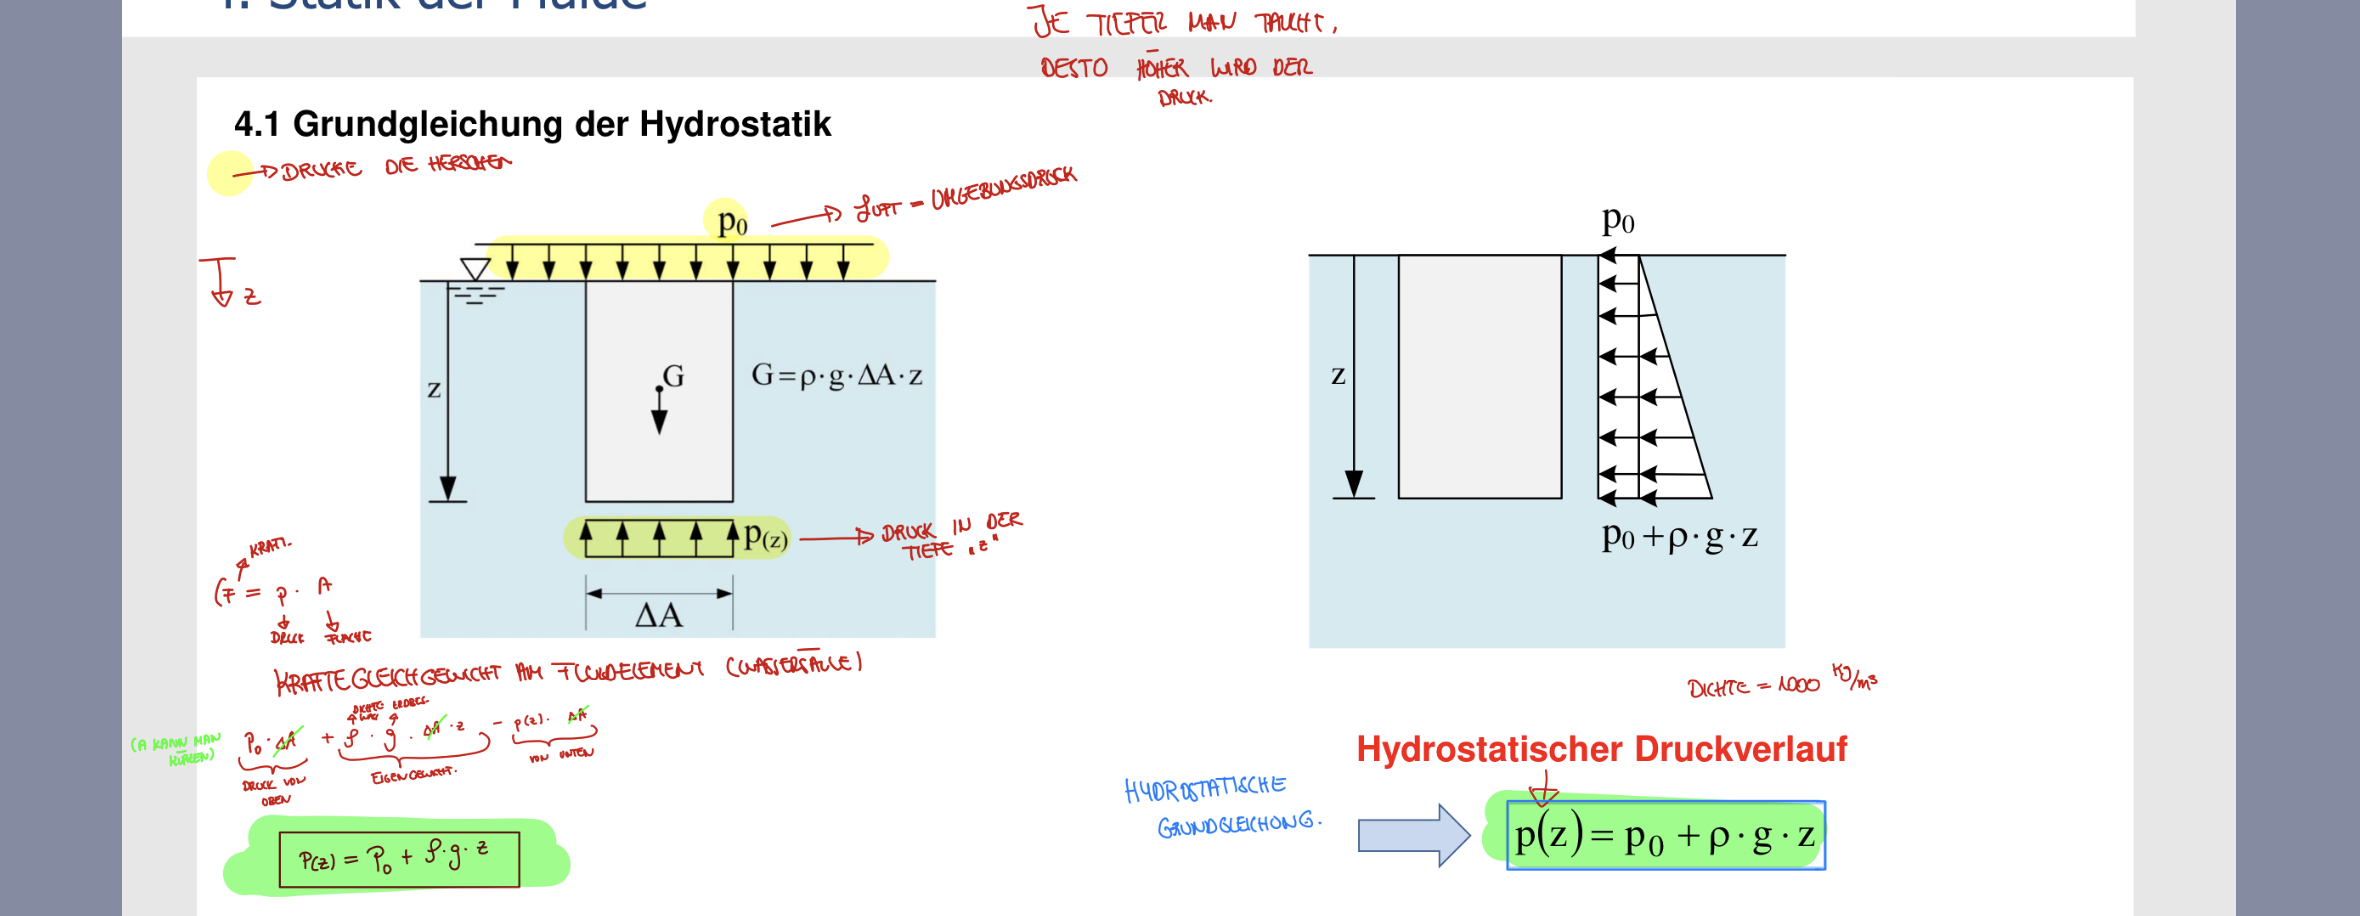 4. Statik der Fluide
JE TIEFER MAN TAUCHT,
DESTO HÖHER WIRD DER
DRUCK.
4.1 Grundgleichung der Hydrostatik
DRÜCKE DIE HERSCHEN
p0
LUFT = UMGEBUNGSDRUCK
z
z
G
G=ρ·g·ΔA·z
p(z)
DRUCK IN DER
TIEFE "z"
ΔA
p0
z
p0+ρ·g·z
KRAFT.
(F = p · A
DRUCK FLÄCHE
KRÄFTEGLEICHGEWICHT AM FLUIDELEMENT (WASSERSÄULE)
DICHTE ERDBES.
(A KANN MAN
KÜRZEN)
P0·ΔA + ρ · g · ΔA · z - p(z) · ΔA
DRUCK VON
OBEN
EIGENGEWICHT.
VON UNTEN
P(z) = P0 + ρ·g·z
DICHTE = 1000 kg/m³
Hydrostatischer Druckverlauf
HYDROSTATISCHE
GRUNDGLEICHUNG.
p(z) = p0 + ρ·g·z